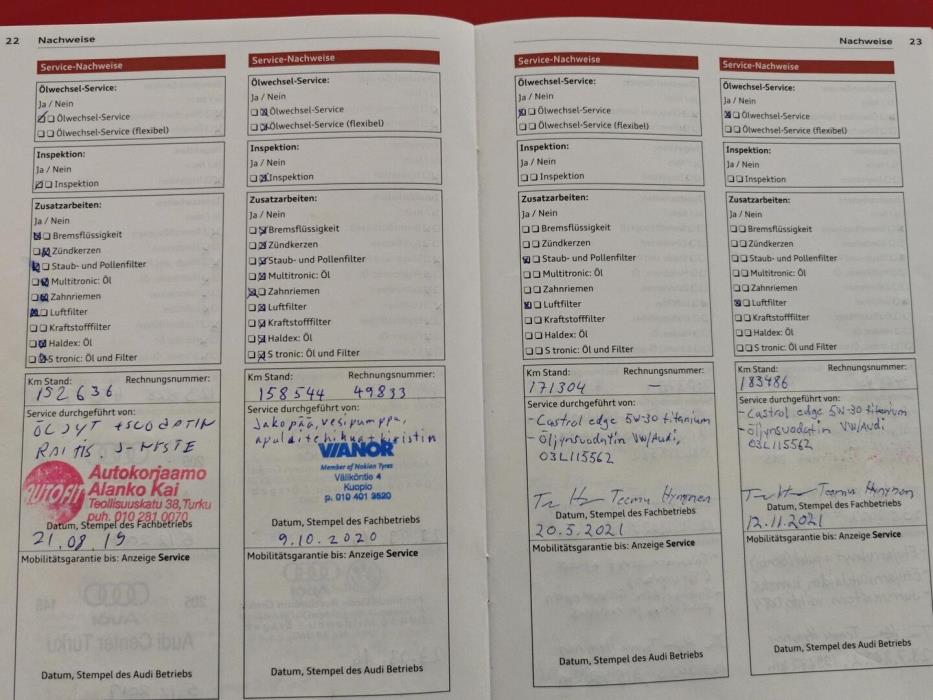 22 Nachweise
Service-Nachweise
Ölwechsel-Service:
Ja / Nein
Ölwechsel-Service
Ölwechsel-Service (flexibel)
Inspektion:
Ja / Nein
Inspektion
Zusatzarbeiten:
Ja / Nein
Bremsflüssigkeit
Zündkerzen
Staub- und Pollenfilter
Multitronic: Öl
Zahnriemen
Luftfilter
Kraftstofffilter
Haldex: Öl
S tronic: Öl und Filter
Km Stand: Rechnungsnummer:
152636
Service durchgeführt von:
ÖLJYT + SUODATIN
RAITIS. J-NESTE
AUTOFIT
Autokorjaamo
Alanko Kai
Teollisuuskatu 38, Turku
puh. 010 281 0070
Datum, Stempel des Fachbetriebs
21.08.19
Mobilitätsgarantie bis: Anzeige Service
Datum, Stempel des Audi Betriebs
Service-Nachweise
Ölwechsel-Service:
Ja / Nein
Ölwechsel-Service
Ölwechsel-Service (flexibel)
Inspektion:
Ja / Nein
Inspektion
Zusatzarbeiten:
Ja / Nein
Bremsflüssigkeit
Zündkerzen
Staub- und Pollenfilter
Multitronic: Öl
Zahnriemen
Luftfilter
Kraftstofffilter
Haldex: Öl
S tronic: Öl und Filter
Km Stand: Rechnungsnummer:
158544 49833
Service durchgeführt von:
Jakopää, vesipumppu,
apulaitehihna + kiristin
VIANOR
Member of Nokian Tyres
Väliköntie 4
Kuopio
p. 010 401 3520
Datum, Stempel des Fachbetriebs
9.10.2020
Mobilitätsgarantie bis: Anzeige Service
Datum, Stempel des Audi Betriebs
Nachweise 23
Service-Nachweise
Ölwechsel-Service:
Ja / Nein
Ölwechsel-Service
Ölwechsel-Service (flexibel)
Inspektion:
Ja / Nein
Inspektion
Zusatzarbeiten:
Ja / Nein
Bremsflüssigkeit
Zündkerzen
Staub- und Pollenfilter
Multitronic: Öl
Zahnriemen
Luftfilter
Kraftstofffilter
Haldex: Öl
S tronic: Öl und Filter
Km Stand: Rechnungsnummer:
171304 —
Service durchgeführt von:
- Castrol edge 5W-30 titanium
- Öljynsuodatin VW/Audi,
03L115562
Teemu Hynynen
Datum, Stempel des Fachbetriebs
20.5.2021
Mobilitätsgarantie bis: Anzeige Service
Datum, Stempel des Audi Betriebs
Service-Nachweise
Ölwechsel-Service:
Ja / Nein
Ölwechsel-Service
Ölwechsel-Service (flexibel)
Inspektion:
Ja / Nein
Inspektion
Zusatzarbeiten:
Ja / Nein
Bremsflüssigkeit
Zündkerzen
Staub- und Pollenfilter
Multitronic: Öl
Zahnriemen
Luftfilter
Kraftstofffilter
Haldex: Öl
S tronic: Öl und Filter
Km Stand: Rechnungsnummer:
183486
Service durchgeführt von:
- Castrol edge 5W-30 titanium
- Öljynsuodatin VW/Audi
03L115562
Teemu Hynynen
Datum, Stempel des Fachbetriebs
12.11.2021
Mobilitätsgarantie bis: Anzeige Service
Datum, Stempel des Audi Betriebs